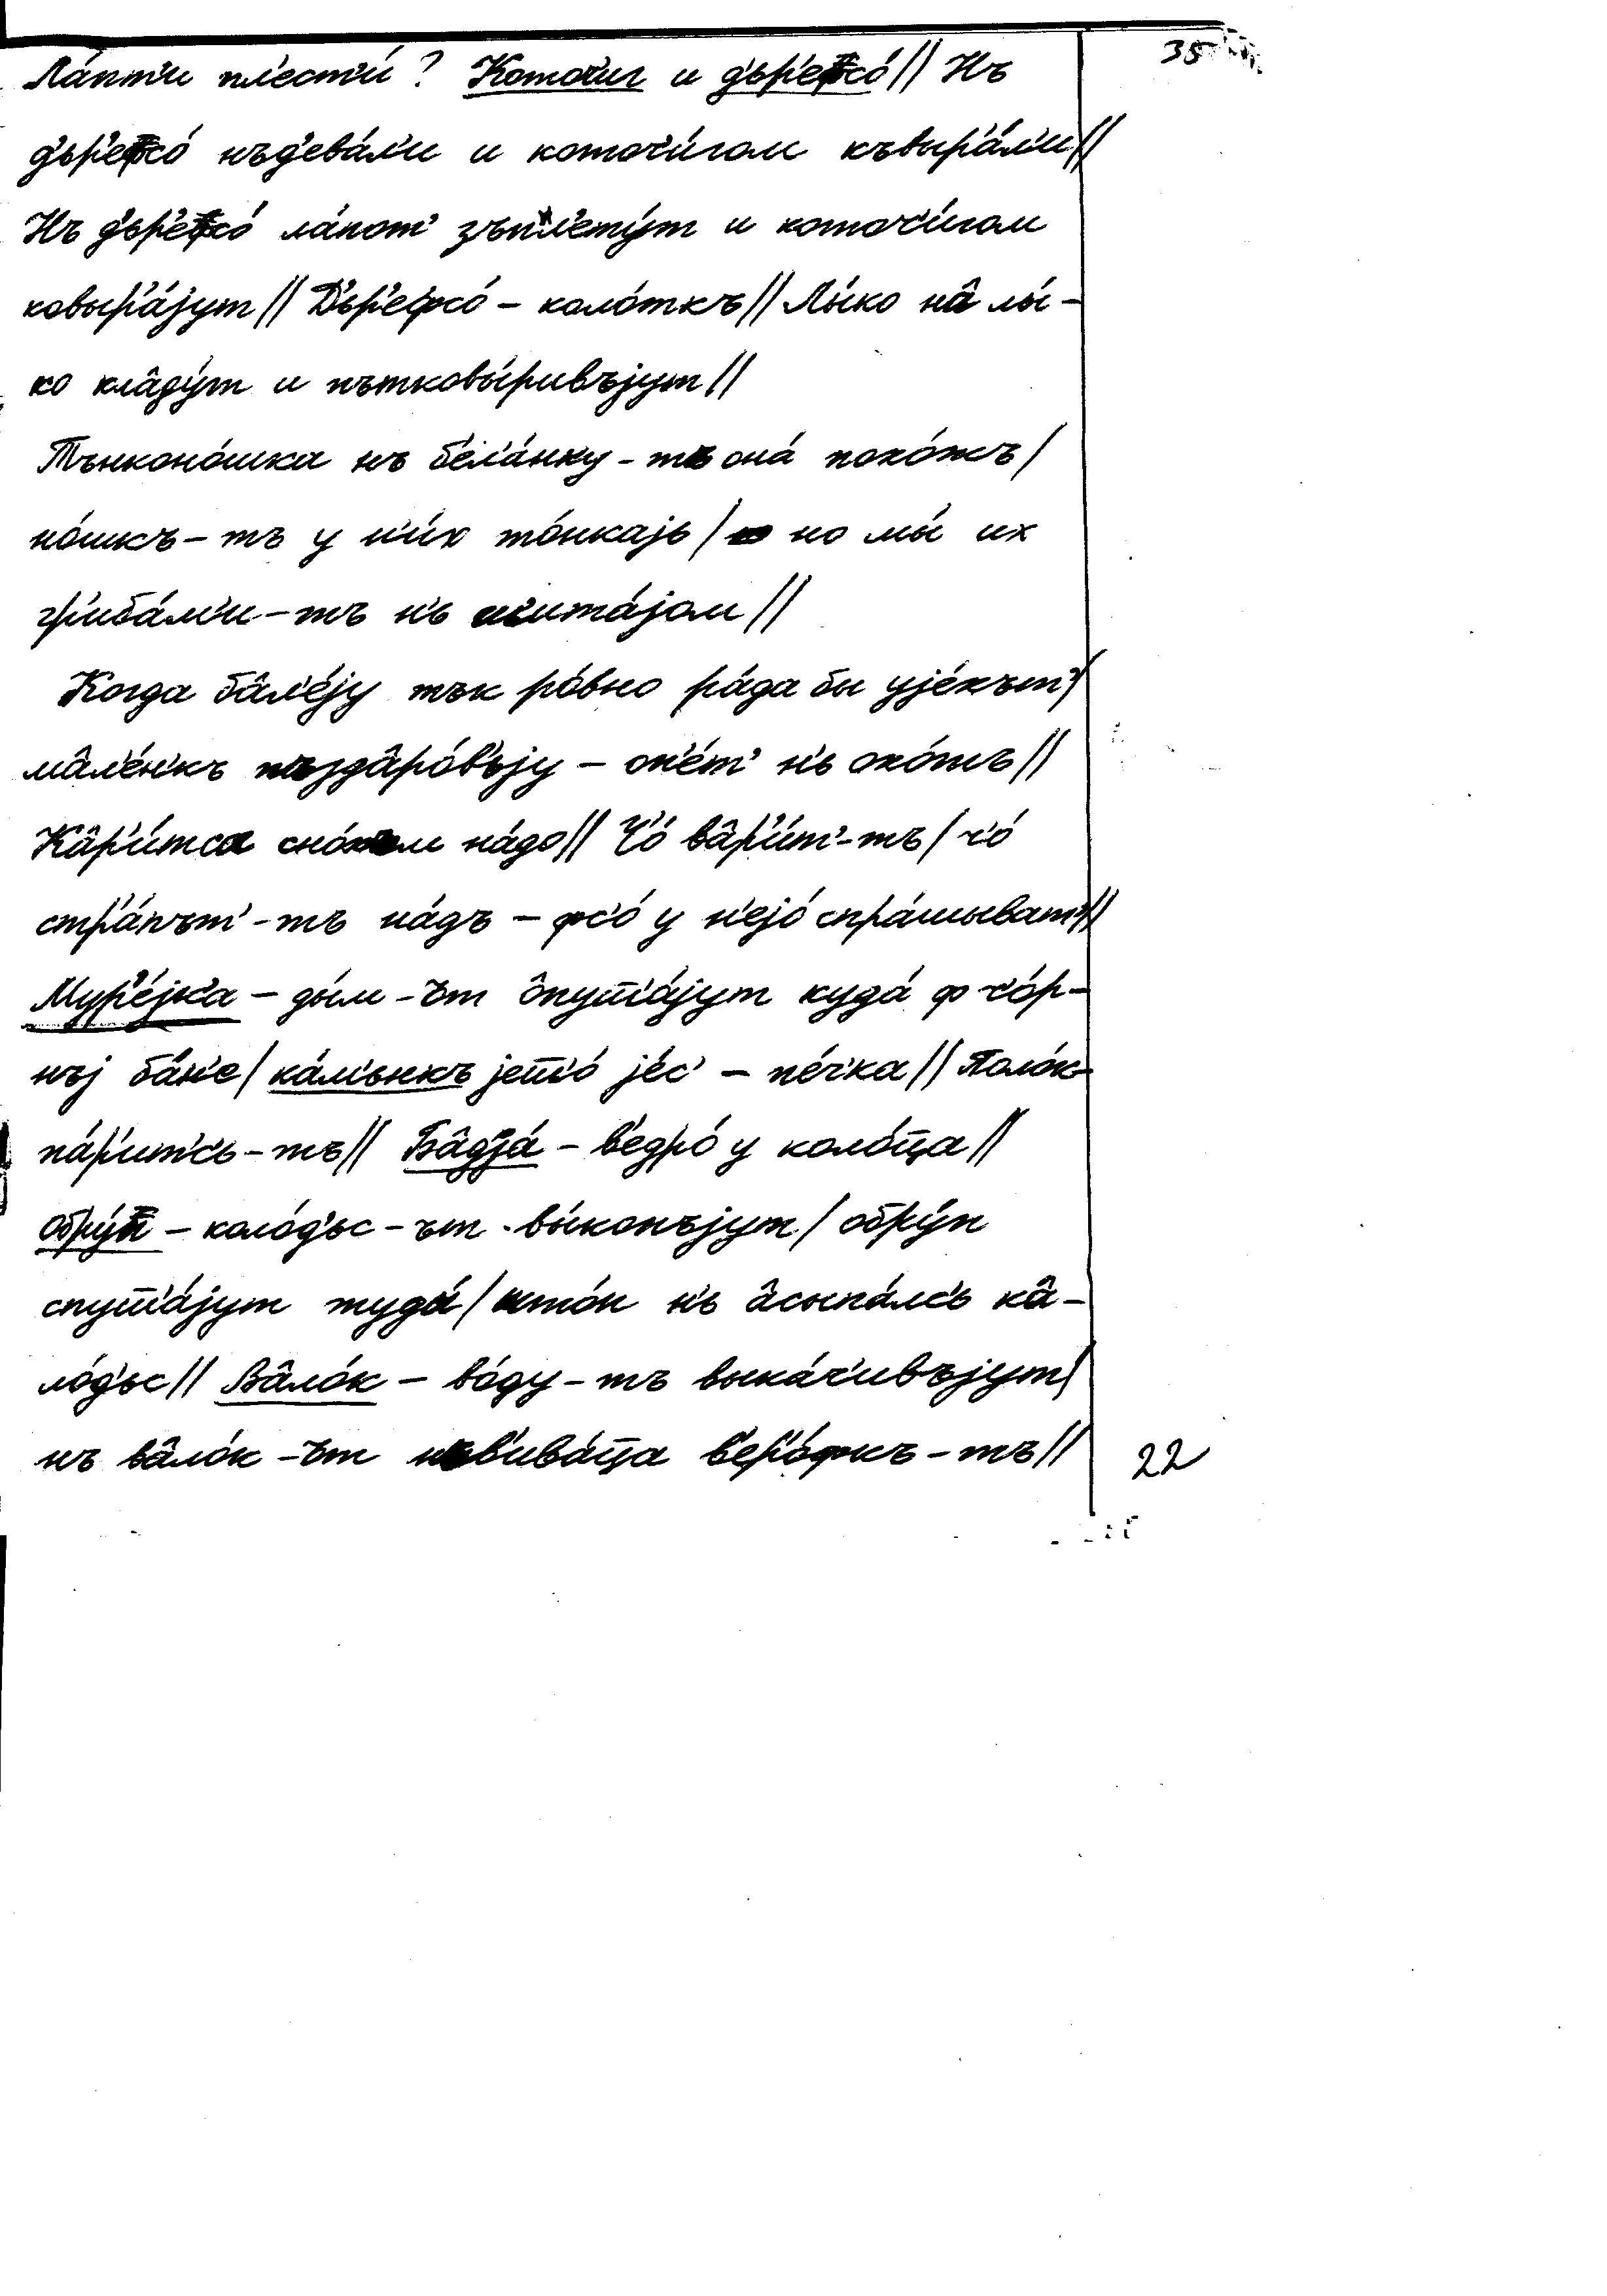 35
Ла́пт'и пл'ест'и́? Коточиг и д'ьр'ефсо́ // Нъ
д'ьр'ефсо́ нъд'ева́л'и и коточ'и́гом къвыр'а́л'и //
Нъ д'ьр'ефсо́ ла́пот' зъпл'ету́т и коточ'и́гом
ковыр'а́jут // Д'ьр'ефсо́ – коло́ткъ // Лы́ко на̂ лы́-
ко кла̂ду́т и пътковы́ривъjут //
Тънконо́шка нъ б'ел'а́нку-тъ она́ похо́жъ /
но́шкъ-тъ у н'и́х то́нкаjь / но мы́ их
гр'иба́м'и-тъ н'ь шита́jом //
Когда ба̂л'е́jу тък ро́вно ра́да бы уjе́хът' /
ма̂л'е́н'къ пъзда̂ро́в'ьjу – оп'е́т' н'ь охо́тъ //
Ка̂р'и́тса сно́хъм на́до // Ч'о́ ва̂р'и́т'-тъ / ч'о́
стр'а́път'-тъ на́дъ – фс'о́ у н'еjо́ спра́шыват' //
Мур'е́jка – ды́м-ът о̂пуш'а́jут куда́ ф ч'о́р-
нъj ба́н'е / ка́м'ьнкъ jещо́ jе́с' – п'е́чка // Поло́к
па́р'ит'сь-тъ // Ба̂дjа́ – в'едро́ у коло́ца //
Обру́п – коло́д'ьс-ът вы́копъjут / обру́п
спуш'а́jут туда́ / штоп н'ь а̂сыпа́лсь ка̂-
ло́д'ьс // Ва̂ло́к – во́ду-тъ выка́ч'ивъjут /
нъ ва̂ло́к-ът нъв'ива́ца в'ер'о́фкъ-тъ //
22